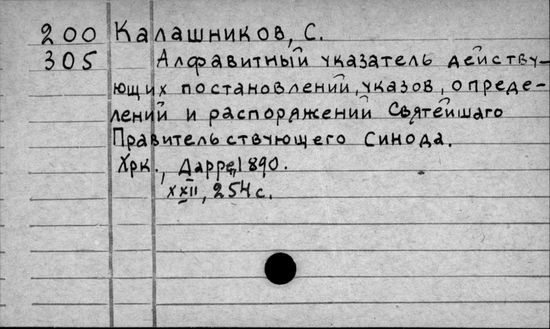 200 Калашников, С.
305 Алфавитный указатель действу-
ющих постановлений, указов, опреде-
лений и распоряжений Святейшаго
Правительствующего Синода.
Хрк., Дарре, 1890.
XXII, 254 с.